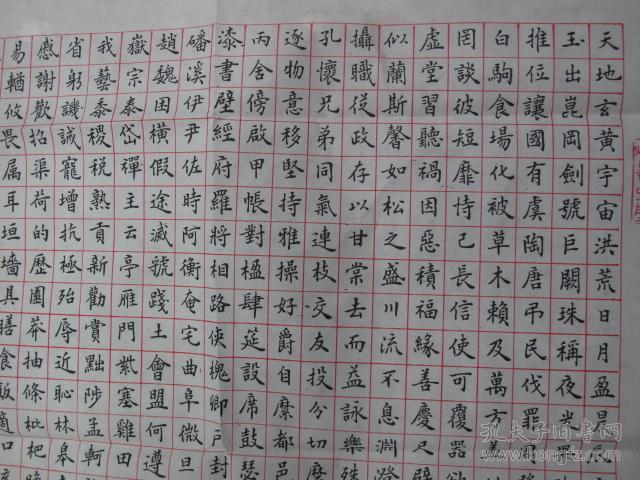 天地玄黃宇宙洪荒日月盈昃
玉出崑岡劍號巨闕珠稱夜光
推位讓國有虞陶唐弔民伐罪
白駒食場化被草木賴及萬方
罔談彼短靡恃己長信使可覆器欲
虛堂習聽禍因惡積福緣善慶尺璧
似蘭斯馨如松之盛川流不息淵澄
攝職從政存以甘棠去而益詠樂殊
孔懷兄弟同氣連枝交友投分切磨
逐物意移堅持雅操好爵自縻都邑
丙舍傍啟甲帳對楹肆筵設席鼓瑟
漆書壁經府羅將相路俠槐卿戶封
磻溪伊尹佐時阿衡奄宅曲阜微旦
趙魏困橫假途滅虢踐土會盟何遵
嶽宗泰岱禪主云亭雁門紫塞雞田
我藝黍稷稅熟貢新勸賞黜陟孟軻
省躬譏誡寵增抗極殆辱近恥林皋
慼謝歡招渠荷的歷園莽抽條枇杷晚
易輶攸畏属耳垣墻具膳飡飯適口